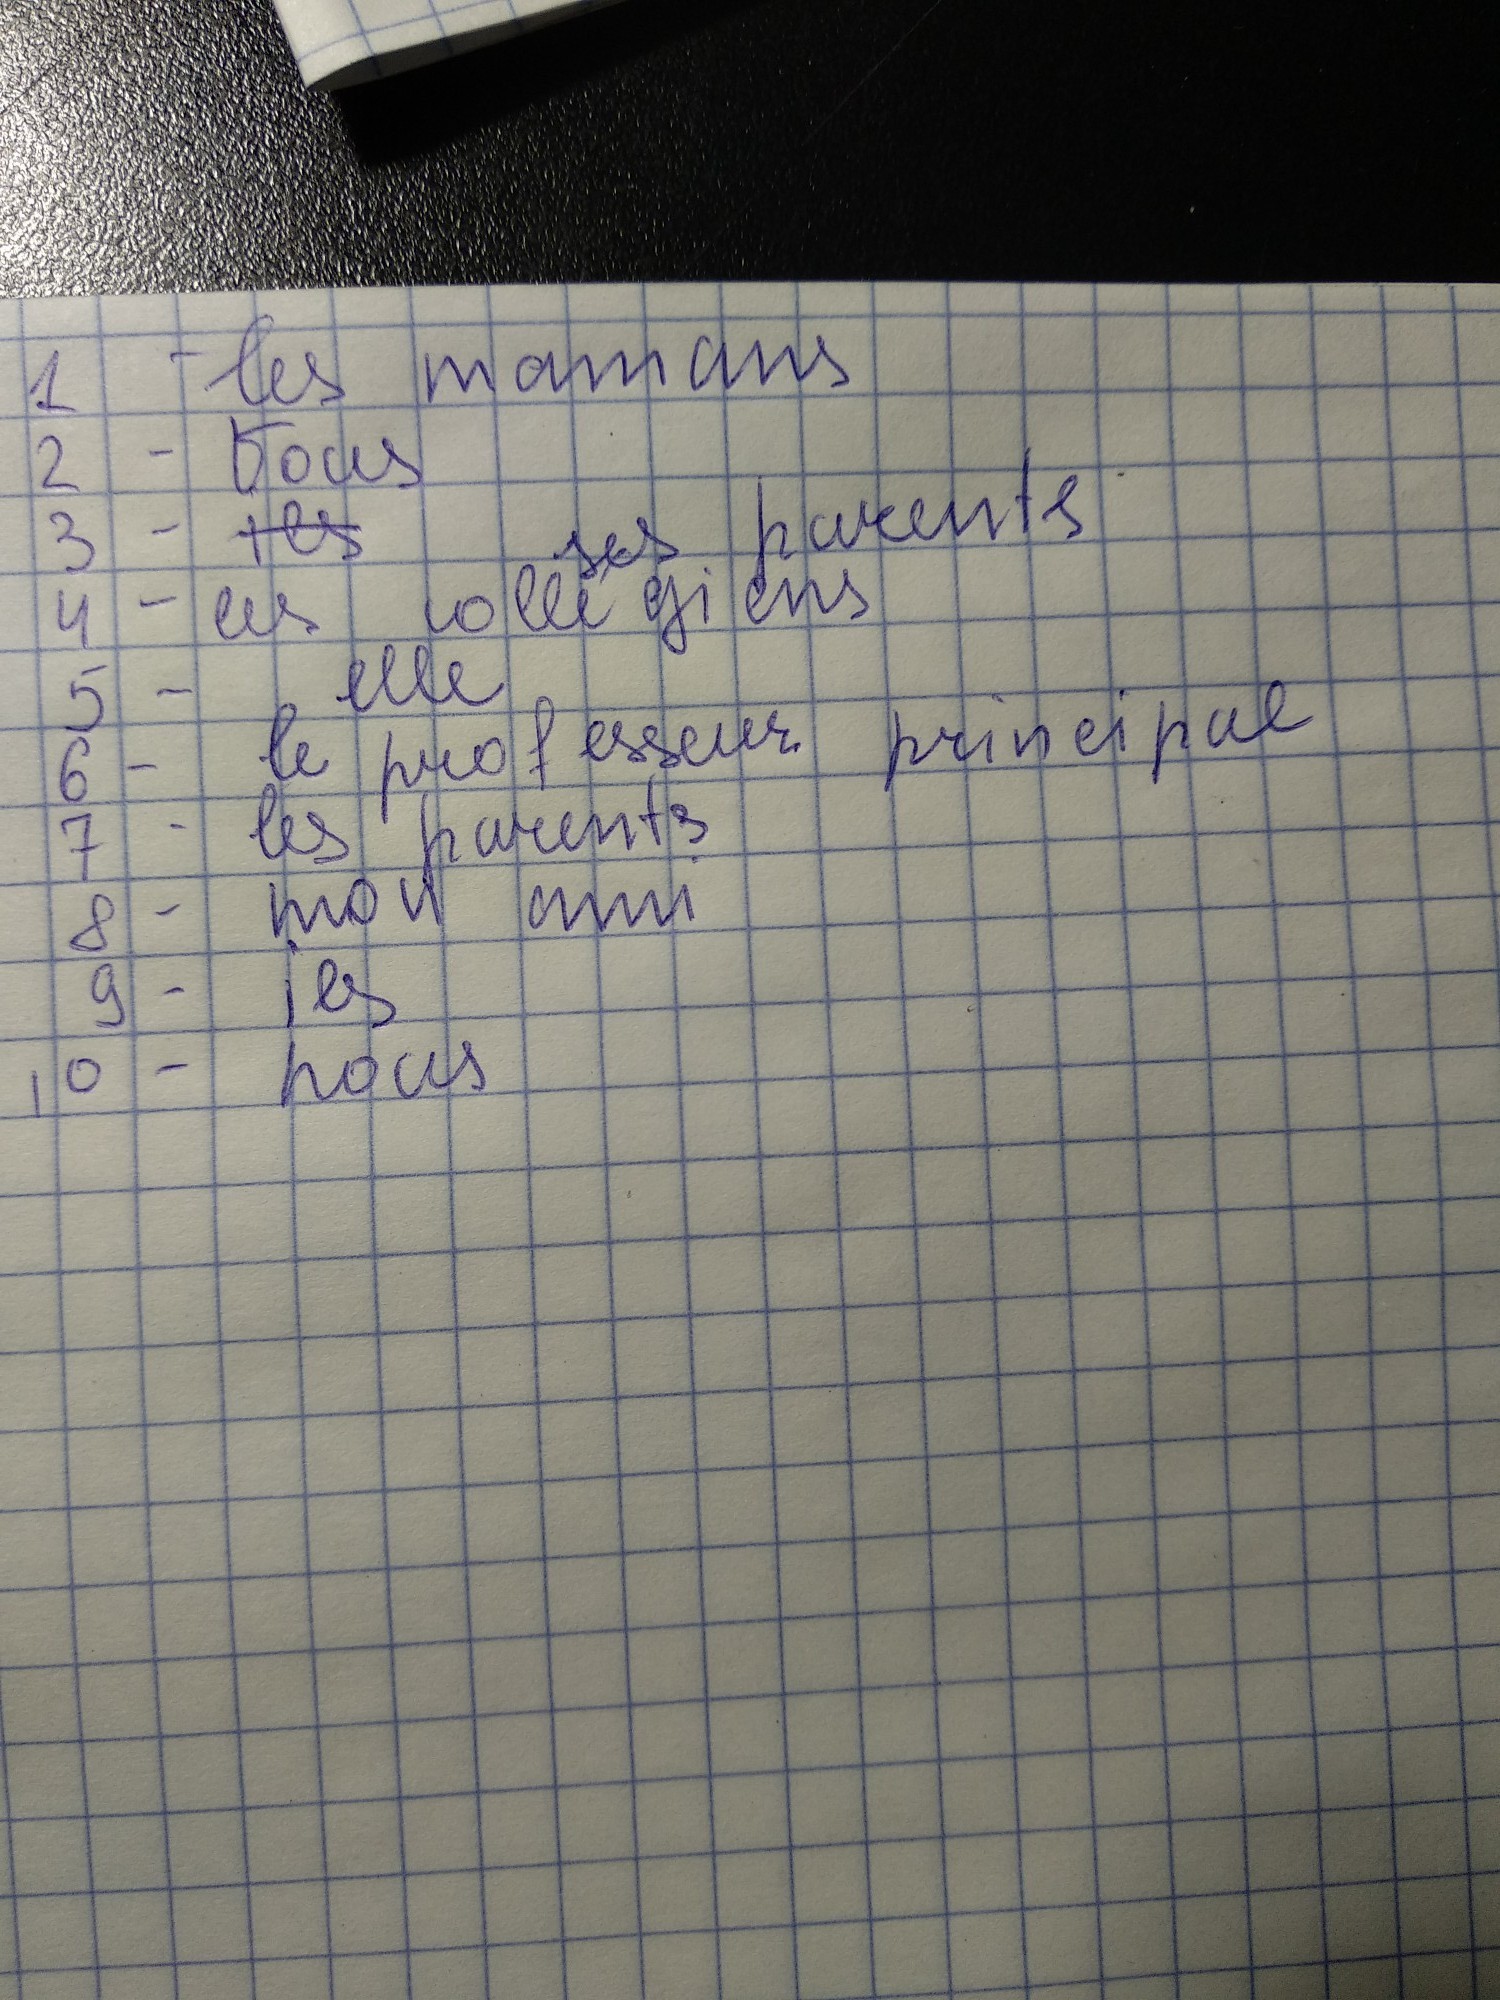 1 - les mamans
2 - Tous
3 - tes ses parents
4 - les collégiens
5 - elle
6 - le professeur principal
7 - les parents
8 - mon ami
9 - ies
10 - nous